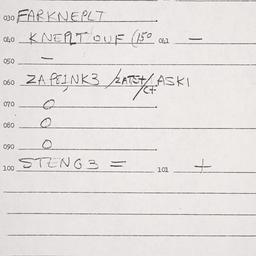 030 FARKNEPLT
040 KNEPLT OUF (150 041 —
050 —
060 ZAPFINK3 /ZATST/ ASKI
070 O
080 O
090 O
100 STENG3 = 101 +